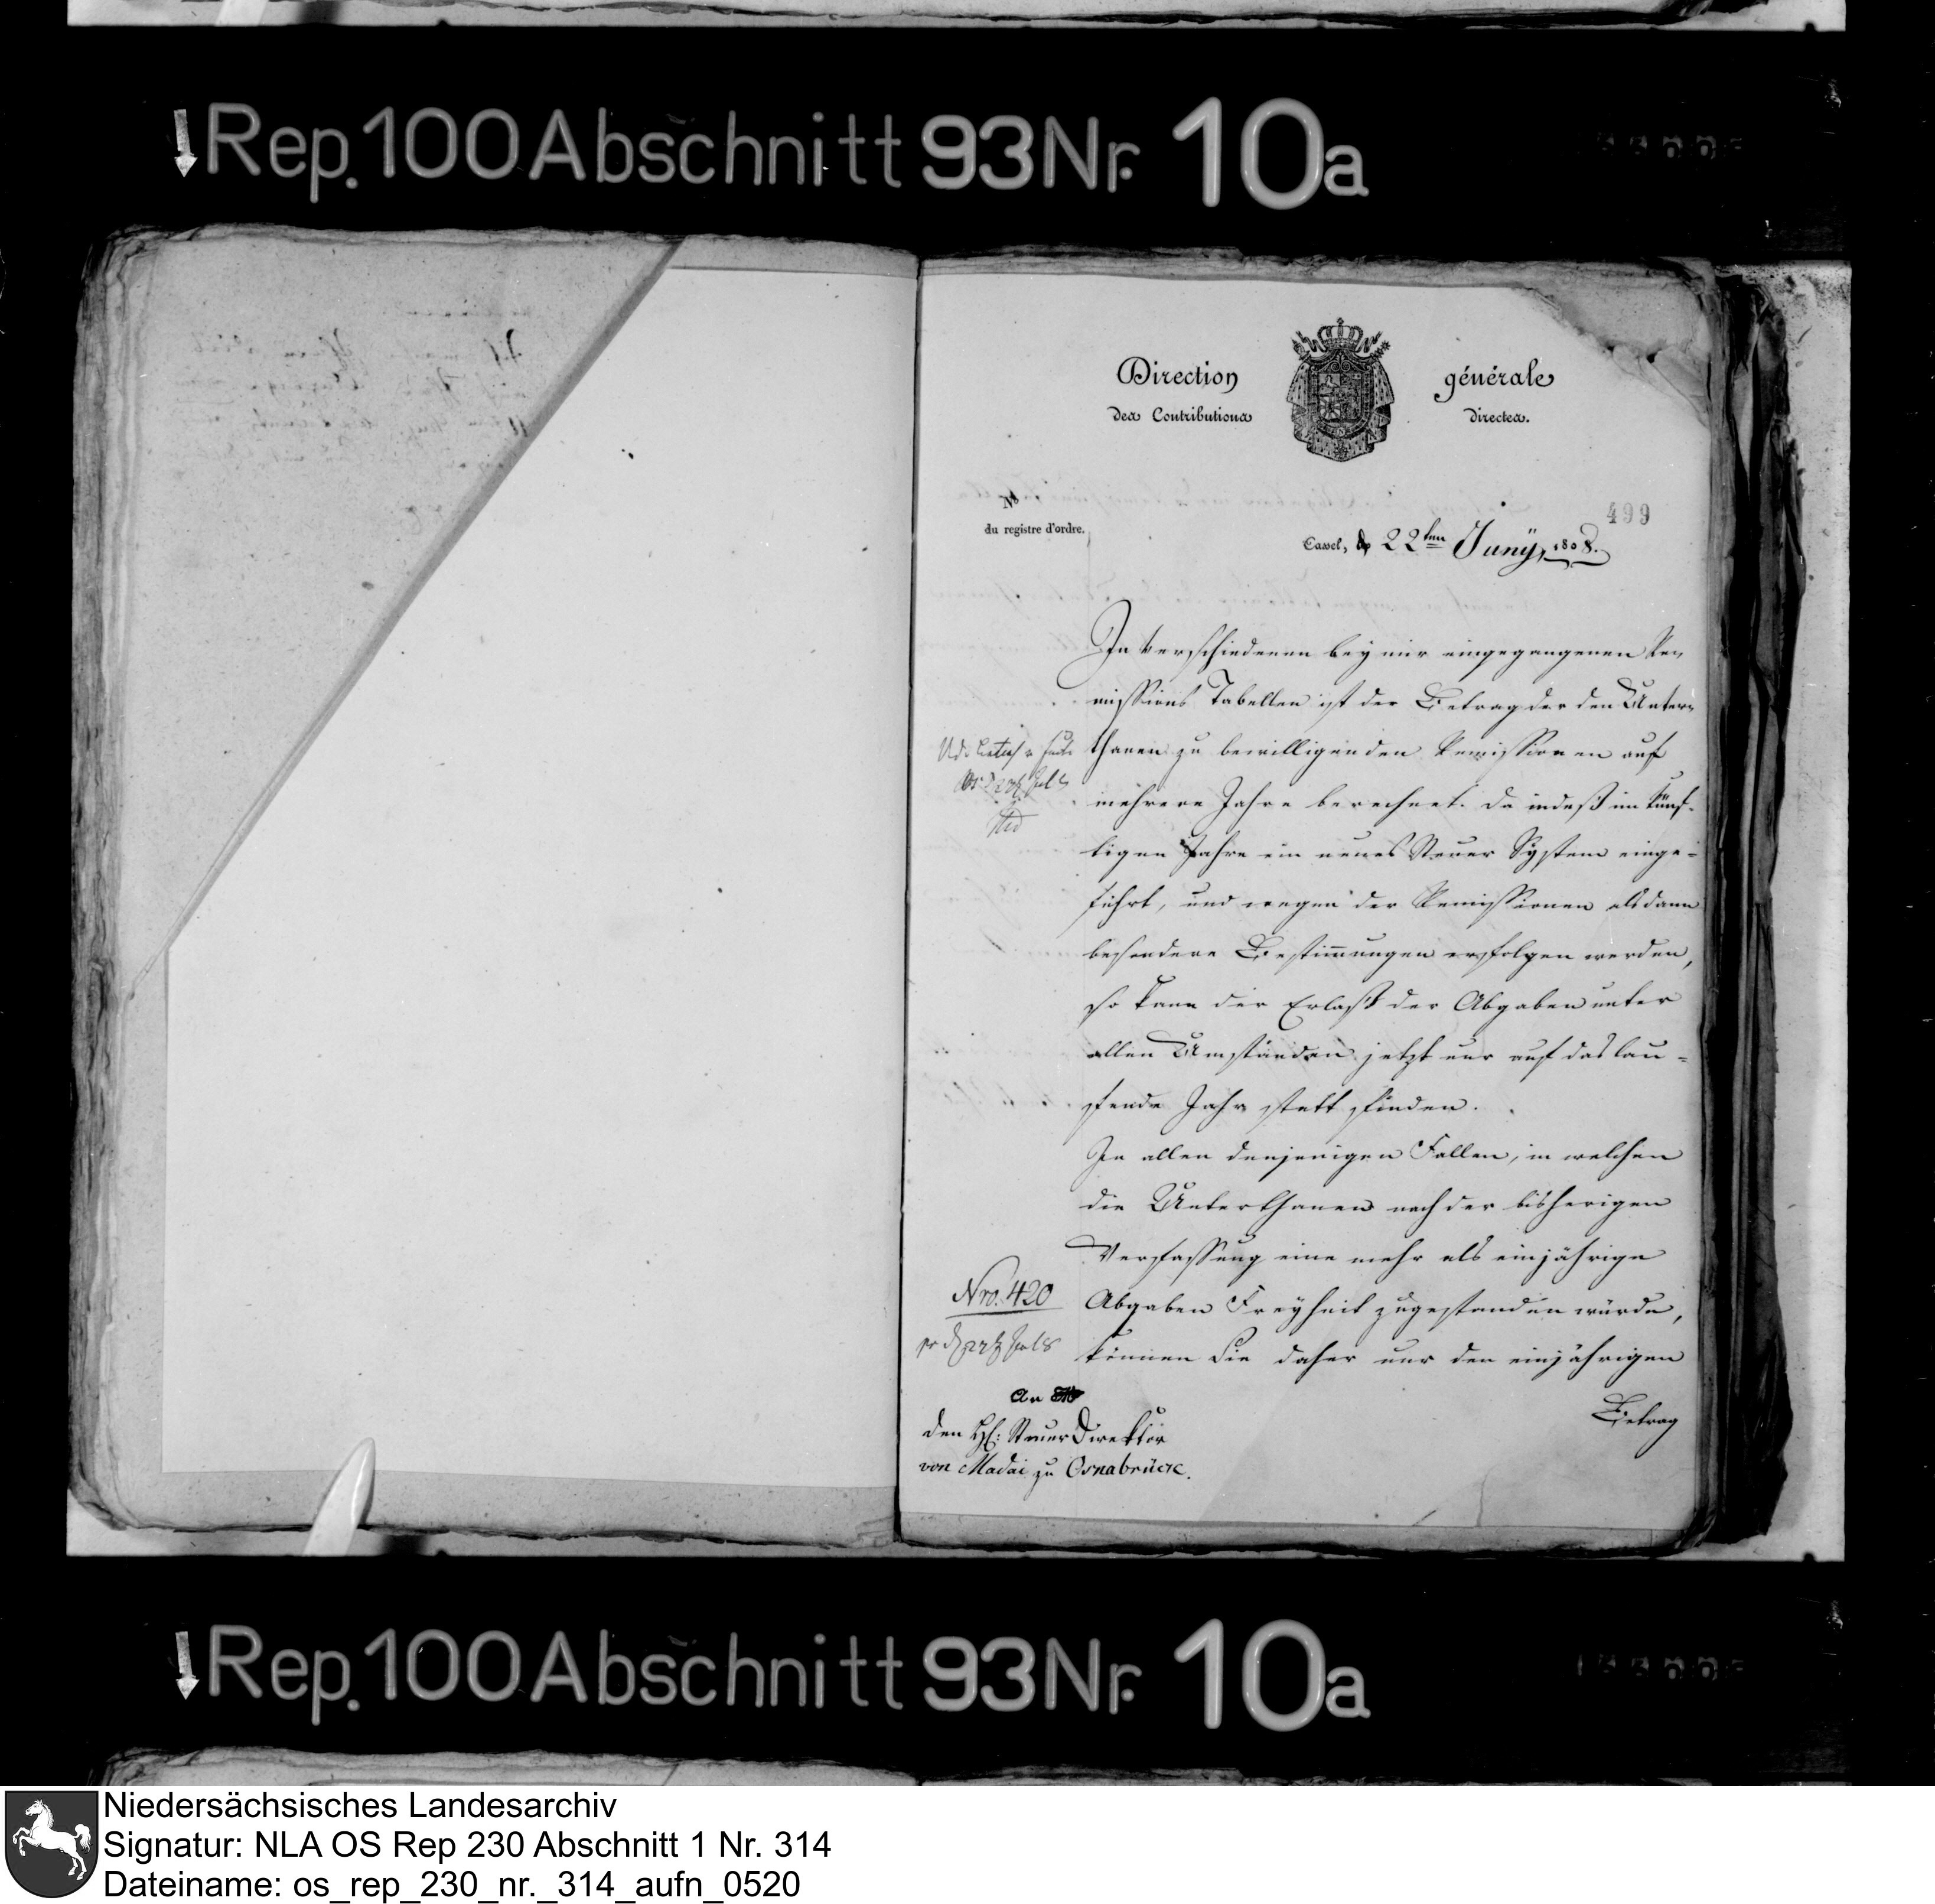 Rep. 100 Abschnitt 93 Nr. 10a
Direction générale
des Contributions directes.
N°
du registre d'ordre.
499
Cassel, d 22ten Juny, 1808.
In verschiedenen bey mir eingegangenen Re-
missions Tabellen ist der Betrag der den Unter-
thanen zu bewilligenden Remissionen auf
mehrere Jahre berechnet. Da indeß im künf-
tigen Jahre ein neues Steuer System einge-
führt, und wegen der Remissionen alsdann
besondere Bestimmungen erfolgen werden,
so kann der Erlaß der Abgaben unter
allen Umständen jetzt nur auf das lau-
fende Jahr statt finden.
In allen denjenigen Fällen, in welchen
die Unterthanen nach der bisherigen
Verfassung eine mehr als einjährige
Abgaben Freyheit zugestanden würde,
können Sie daher nur den einjährigen
Betrag
Nro. 420
An
den H: Steuer Direktor
von Madai zu Osnabrück.
Rep. 100 Abschnitt 93 Nr. 10a
Niedersächsisches Landesarchiv
Signatur: NLA OS Rep 230 Abschnitt 1 Nr. 314
Dateiname: os_rep_230_nr._314_aufn_0520